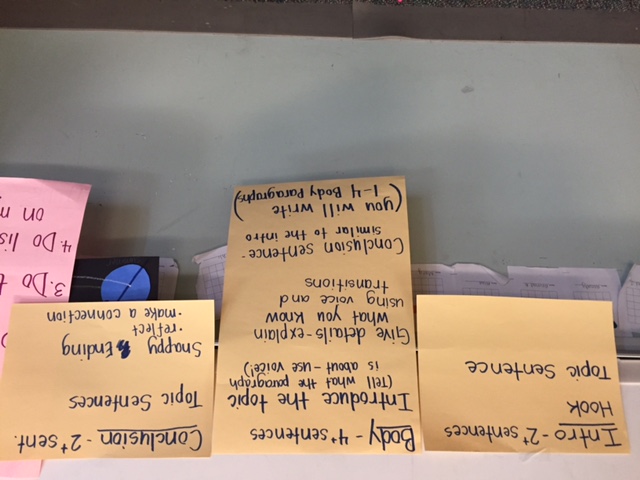 Intro - 2+ sentences
Hook
Topic Sentence
Body - 4+ sentences
Introduce the topic
(Tell what the paragraph
is about - use voice!)
Give details - explain
what you know
using voice and
transitions
Conclusion sentence -
similar to the intro
(you will write
1-4 Body Paragraphs)
Conclusion - 2+ sent.
Topic Sentences
Snappy Ending
· reflect
· make a connection
3. Do
4. Do
on